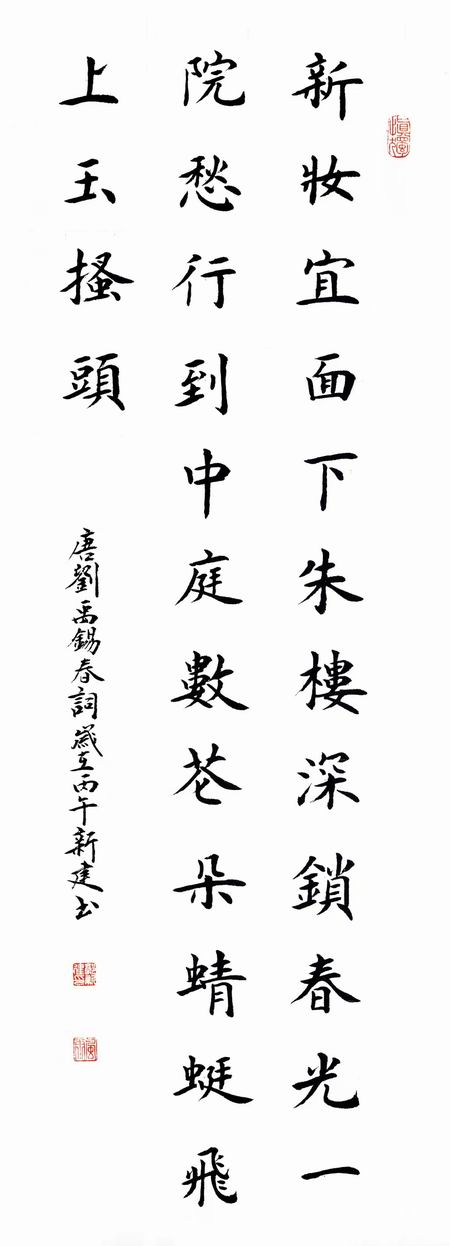 新妝宜面下朱樓深鎖春光一
院愁行到中庭數花朵蜻蜓飛
上玉搔頭
唐劉禹錫春詞歲在丙午新建书